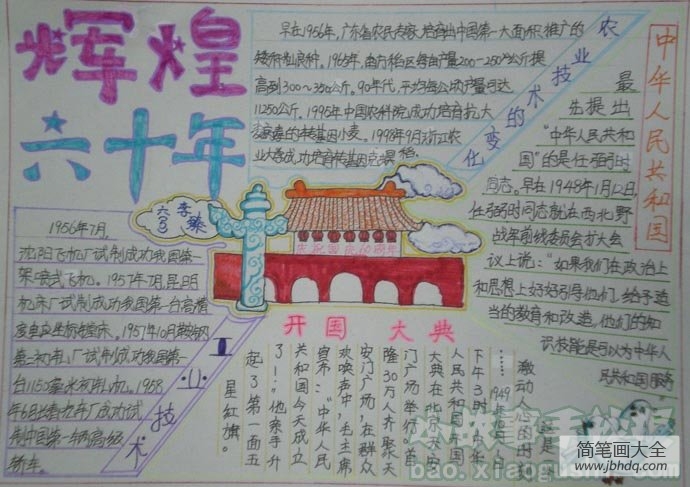 辉煌
六十年
早在1956年,广东省农民专家培育出中国第一大面积推广的
矮秆籼良种。1965年,南方稻区每亩产量200~250公斤提
高到300~350公斤。90年代,平均每公顷产量可达
11250公斤。1995年中国农科院成功培育抗大
转基因小麦。1998年9月浙江农
业大学成功培育转基因 稻。
农业技术的变化
中华人民共和国
最
先提出
“中华人民共和
国”的是任弼时
同志。早在1948年1月12日,
任弼时同志就在西北野
战军前线委员会扩大会
议上说:“如果我们在政治上
和思想上好好引导他们,给予适
当的教育和改造,他们的知
识技能是可以为中华人
民共和国服务
六(3) 李臻
庆祝国庆60周年
1956年7月,
沈阳飞机厂试制成功我国第一
架喷式飞机。1957年7月昆明
机床厂试制成功我国第一台高精
度 坐标镗床。1957年10月鞍钢
第二初轧厂试制成功我国第一
台1150毫米初轧机。1958
年6月 汽车厂成功试
制中国第一辆高级
轿车。
工业技术
开国大典
这是一个
激动人心的时刻
1949年10月1日
下午3时,中华
人民共和国开国
大典在北京天安
门广场举行。首
隆30万人齐聚天
安门广场,在群众
欢呼声中,毛主席
宣布:“中华人民
共和国今天成立
了!”他亲手升
起了第一面五
星红旗。
简笔画大全
www.jbhdq.com